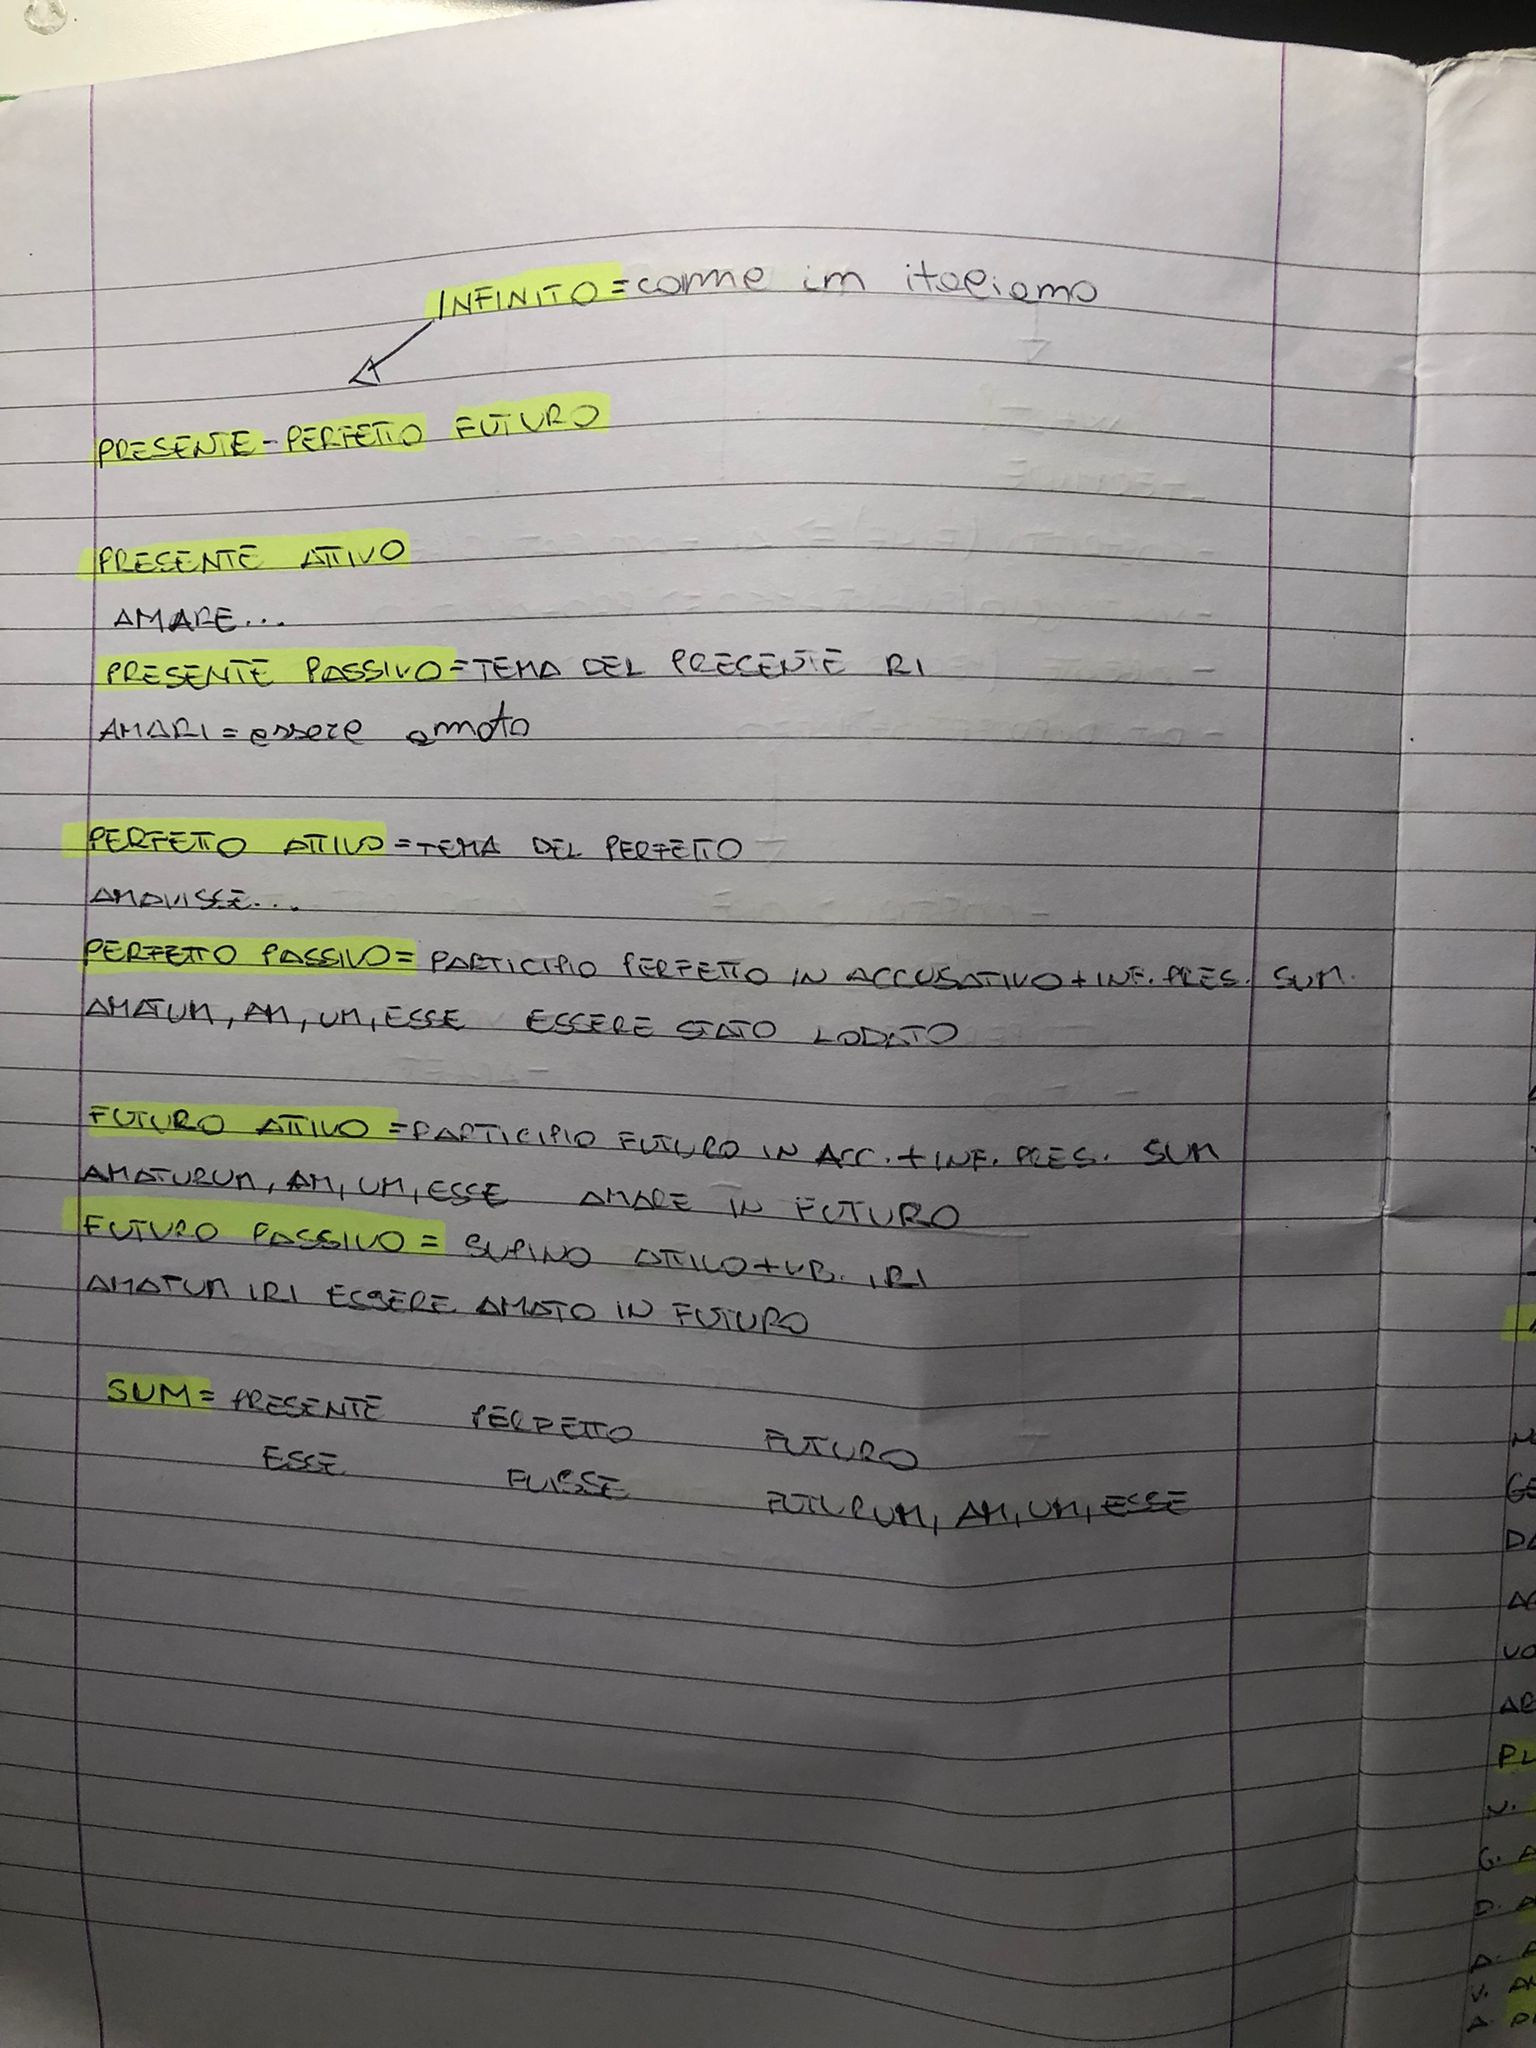 INFINITO = come in italiano
PRESENTE - PERFETTO FUTURO
PRESENTE ATTIVO
AMARE...
PRESENTE PASSIVO = TEMA DEL PRESENTE RI
AMARI = essere amato
PERFETTO ATTIVO = TEMA DEL PERFETTO
AMAVISSE...
PERFETTO PASSIVO = PARTICIPIO PERFETTO IN ACCUSATIVO + INF. PRES. SUM.
AMATUM, AM, UM, ESSE ESSERE STATO LODATO
FUTURO ATTIVO = PARTICIPIO FUTURO IN ACC. + INF. PRES. SUM
AMATURUM, AM, UM, ESSE AMARE IN FUTURO
FUTURO PASSIVO = SUPINO ATTIVO + VB. IRI
AMATUM IRI ESSERE AMATO IN FUTURO
SUM = PRESENTE PERFETTO FUTURO
ESSE FUISSE FUTURUM, AM, UM, ESSE